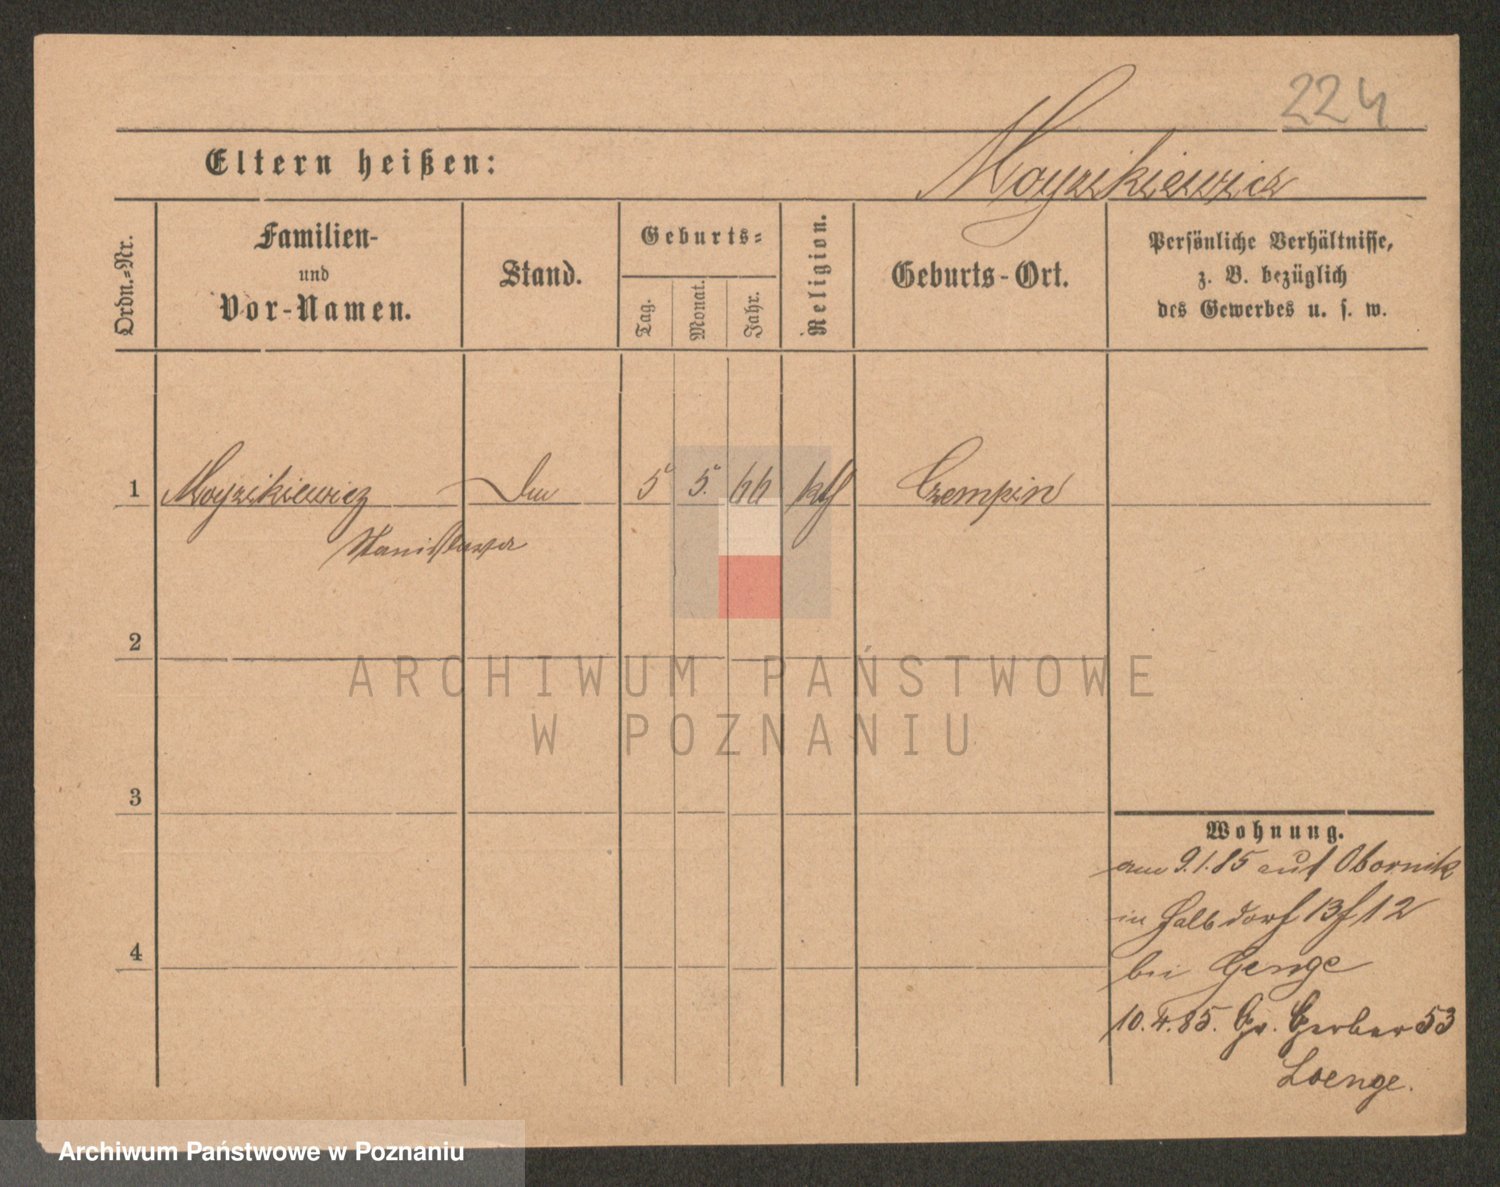 224
Eltern heißen:
Moyzikiewicz
Ordn.-Nr.
Familien-
und
Vor-Namen.
Stand.
Geburts-
Tag.
Monat.
Jahr.
Religion.
Geburts-Ort.
Persönliche Verhältnisse,
z. B. bezüglich
des Gewerbes u. s. w.
1 Moyzikiewicz 5 5. 66 kth Czempin
Stanislawa
2
3
4
Wohnung.
am 9.1.85 auf Obornik
in 12
bei Genge
10.4.85. Gr. Gerber 53
Loenge.
ARCHIWUM PAŃSTWOWE
W POZNANIU
Archiwum Państwowe w Poznaniu